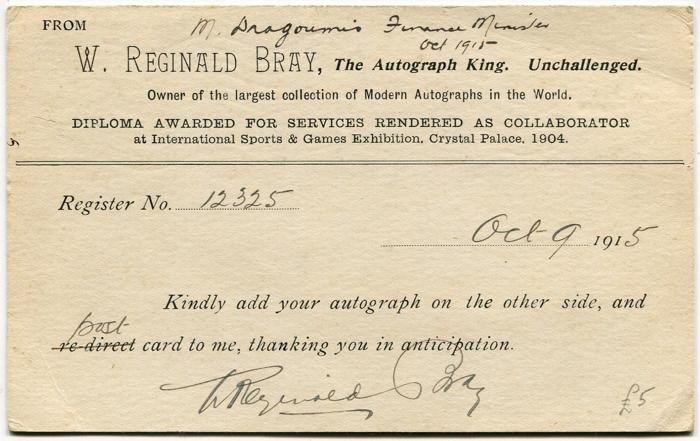 FROM
M. Dragoumis Finance Minister
Oct 1915
W. REGINALD BRAY, The Autograph King. Unchallenged.
Owner of the largest collection of Modern Autographs in the World.
DIPLOMA AWARDED FOR SERVICES RENDERED AS COLLABORATOR
at International Sports & Games Exhibition, Crystal Palace, 1904.
Register No. 12325
Oct 9 1915
Kindly add your autograph on the other side, and
post
re-direct card to me, thanking you in anticipation.
W Reginald Bray
£5